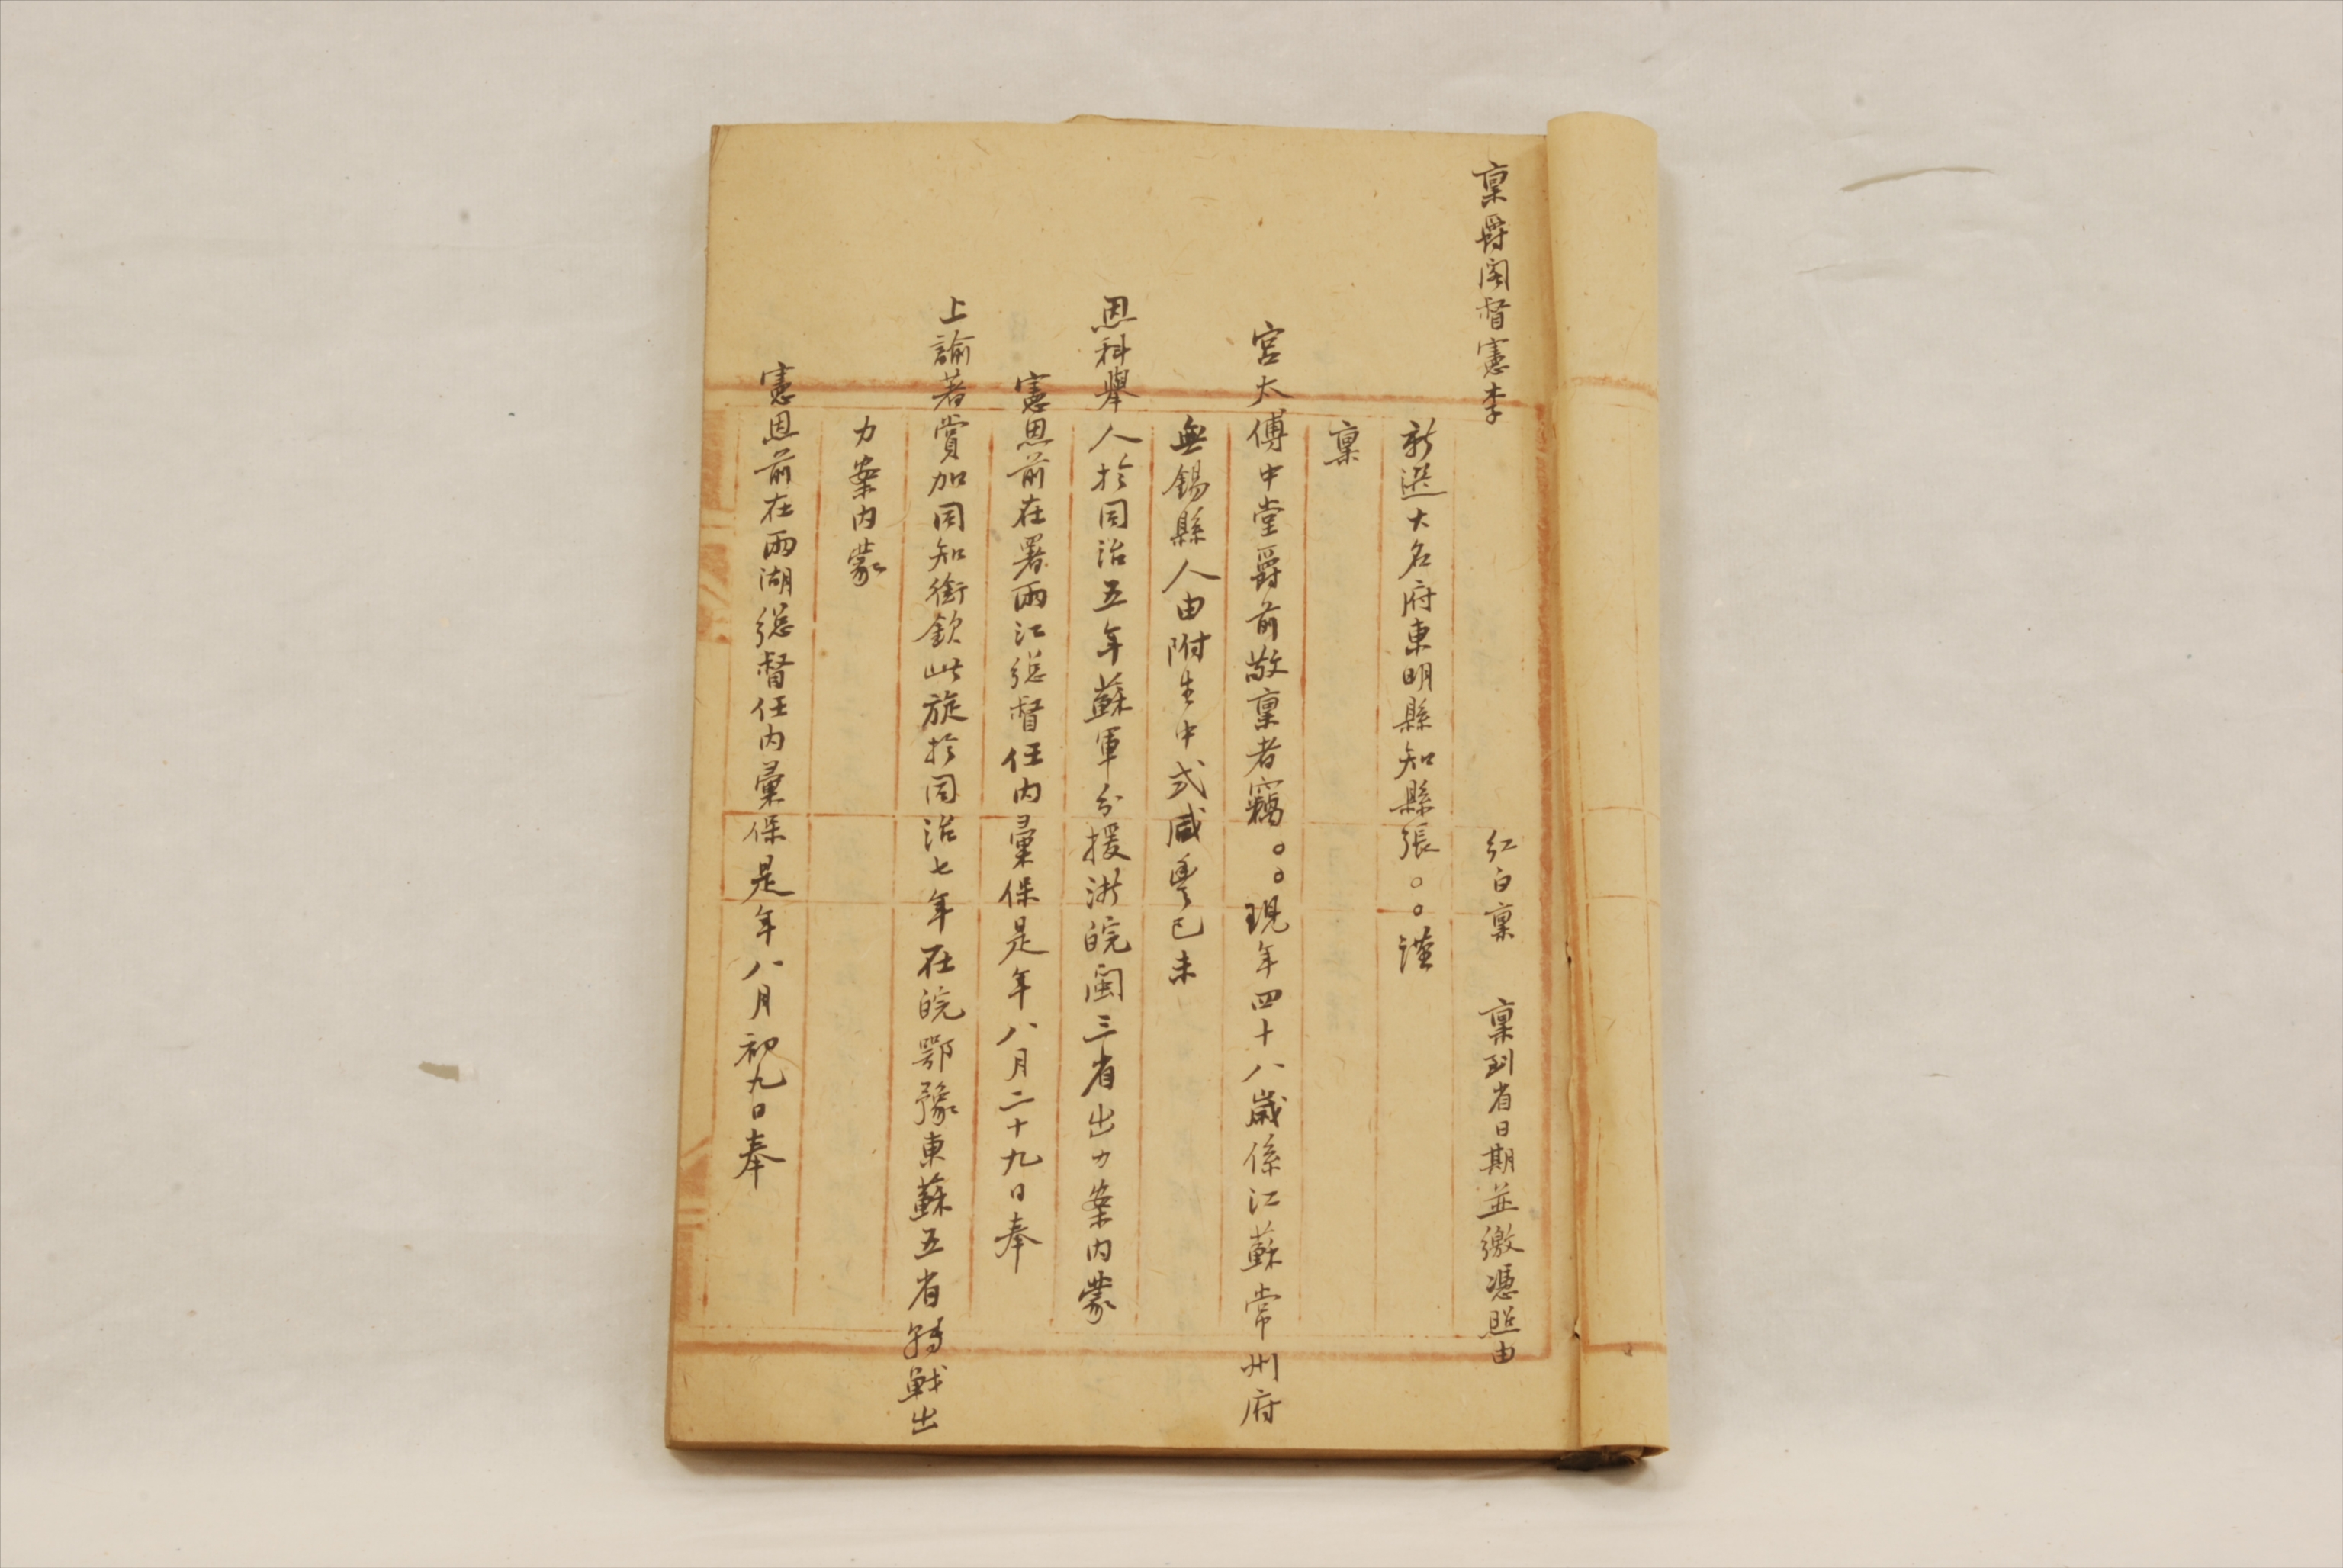 稟爵閣督憲李　紅白稟　稟到省日期並繳憑照由
新選大名府東明縣知縣張○○謹
稟
宮太傅中堂爵前敬稟者竊○○現年四十八歲係江蘇常州府
無錫縣人由附生中式咸豐己未
恩科舉人於同治五年蘇軍分援浙皖閩三省出力案內蒙
憲恩前在署兩江總督任內彙保是年八月二十九日奉
上諭著賞加同知銜欽此旋於同治七年在皖鄂豫東蘇五省轉戰出
力案內蒙
憲恩前在兩湖總督任內彙保是年八月初九日奉